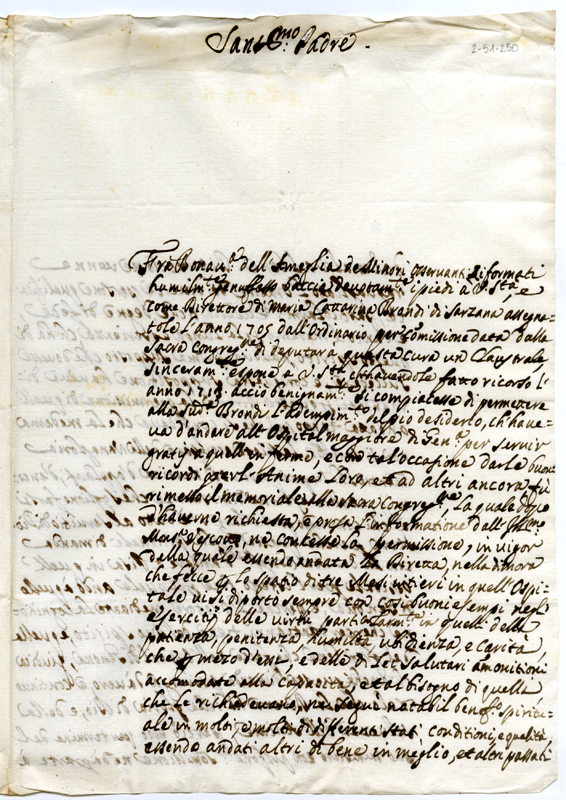 Sant.mo Padre.
2-51-250
Fra Bonav.a dell'Ameglia de Minori Osservanti Riformati
humilm.te genuflesso baccia devotam.te i piedi a V. S.ta, e
come Direttore di Maria Cattarina Brondi di Sarzana assegna-
tole l'anno 1705 dall'Ordinario, per comissione data dalla
Sacra Congreg.ne di deputar a questa cura un Claustrale,
sinceram.te espone a V. S.ta ch'havendole fatto ricorso l'
anno 1713 acciò benignam.te si compiacesse di permettere
alla sud.a Brondi l'adempim.to del pio desiderio, ch'have-
va d'andare all'Ospital maggiore di Gen.a per servir
gratis a quell'inferme, e con tal'occasione darle buoni
ricordi per l'Anime loro, et ad altri ancora fù
rimesso il memoriale alla Sacra Congreg.ne, la quale dopo
d'haverne richiesta, e presa l'informatione dall'
Mons.r Vescovo, ne concesse la permissione, in vigor
della quale essendo andata la Diretta, nella dimora
che fece p lo spatio di tre Mesi intieri in quell'Ospi-
tale vi si diportò sempre con così buoni esempi negl'
esercitij delle virtù, particolarm.te in quelli della
patienza, penitenza, humiltà, ubidienza, e carità,
che p mezo d'essi, e delle di Lei salutari amonitioni
accomodate alla capacità, et al bisogno di quelle
che le richiedevano, ne seguì nattabil benef.o spiritu-
ale in molti e molte di differenti stati conditioni, e qualità
essendo andati altri di bene in meglio, et altri passati